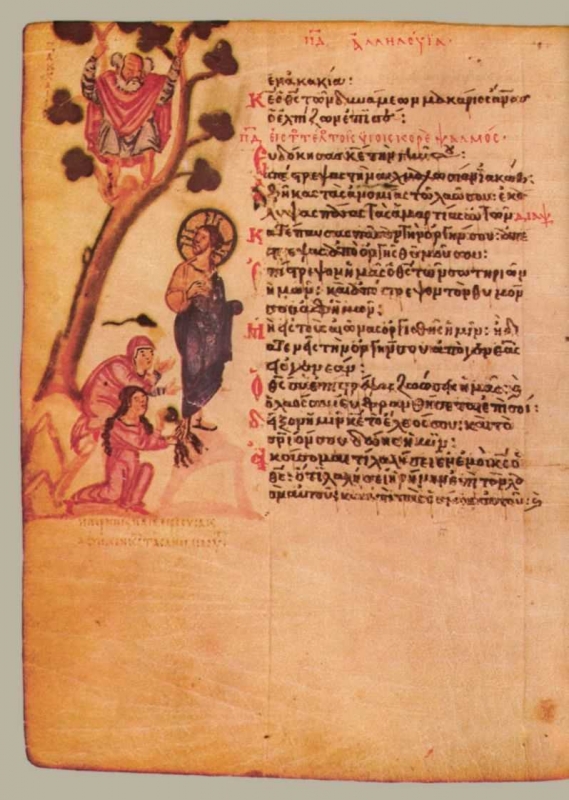 πδ ἀλληλούϊα·
ἐν ἀκακία:
Κε ὁ θς τῶν δυνάμεων μακάριος ἄνος
ὁ ἐλπίζων ἐπὶ σοί:
πδ εἰς τὸ τέλος τοῖς υἱοῖς κορὲ ψαλμός·
Εὐδόκησας κε τὴν γῆν σου:
ἀπέστρεψας τὴν αἰχμαλωσίαν ἰακώβ:
Ἀφῆκας τὰς ἀνομίας τῶ λαῶ σου: ἐκά
λυψας πάσας τὰς ἁμαρτίας αὐτῶν διάψ
Κατέπαυσας πᾶσαν τὴν ὀργήν σου: ἀπέ
στρεψας ἀπὸ ὀργῆς θυμοῦ σου:
Ἐπίστρεψον ἡμᾶς ὁ θς τῶν σωτηριῶν
ἡμῶν: καὶ ἀπόστρεψον τὸν θυμόν
σου ἀφ ἡμῶν:
Μὴ εἰς τοὺς αἰῶνας ὀργισθῆς ἡμῖν: ἢ δι
ατενεῖς τὴν ὀργήν σου ἀπὸ γενεᾶς
εἰς γενεάν:
Ὁ θς σὺ ἐπιστρέψας ζωώσεις ἡμᾶς: ϗ
ὁ λαός σου εὐφρανθήσεται ἐπὶ σοί:
Δεῖξον ἡμῖν κε τὸ ἔλεός σου: καὶ τὸ
σριόν σου δώης ἡμῖν:
Ἀκούσομαι τί λαλήσει ἐν ἐμοὶ κς ὁ
θς: ὅτι λαλήσει εἰρήνην ἐπὶ τὸν λα
ὸν αὐτοῦ: καὶ ἐπὶ τοὺς ὁσίους αὐτοῦ: ϗ